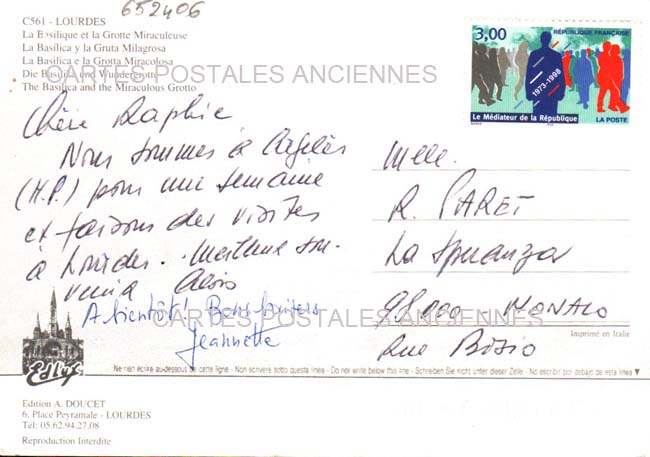 652406
C561 - LOURDES
La Basilique et la Grotte Miraculeuse
La Basílica y la Gruta Milagrosa
La Basilica e la Grotta Miracolosa
Die Basilika und Wundergrotte
The Basilica and the Miraculous Grotto
CARTES POSTALES ANCIENNES
3,00
RÉPUBLIQUE FRANÇAISE
1973-1998
Le Médiateur de la République
LA POSTE
Chère Raphie
Nous sommes à Argelès
(H.P.) pour une semaine
et faisons des visites
à Lourdes. Meilleur sou-
venir Aloïs
A bientôt! Bons baisers
Jeannette
Melle.
R. PARET
La Speranza
98000 MONACO
Rue Bosio
CARTES POSTALES ANCIENNES
Imprimé en Italie
Edllys
Ne rien écrire au-dessous de cette ligne - Non scrivere sotto questa linea - Do not write below this line - Schreiben Sie nicht unter dieser Zeile - No escribir por debajo de esta linea ▼
Edition A. DOUCET
6, Place Peyramale - LOURDES
Tél: 05.62.94.27.08
Reproduction Interdite